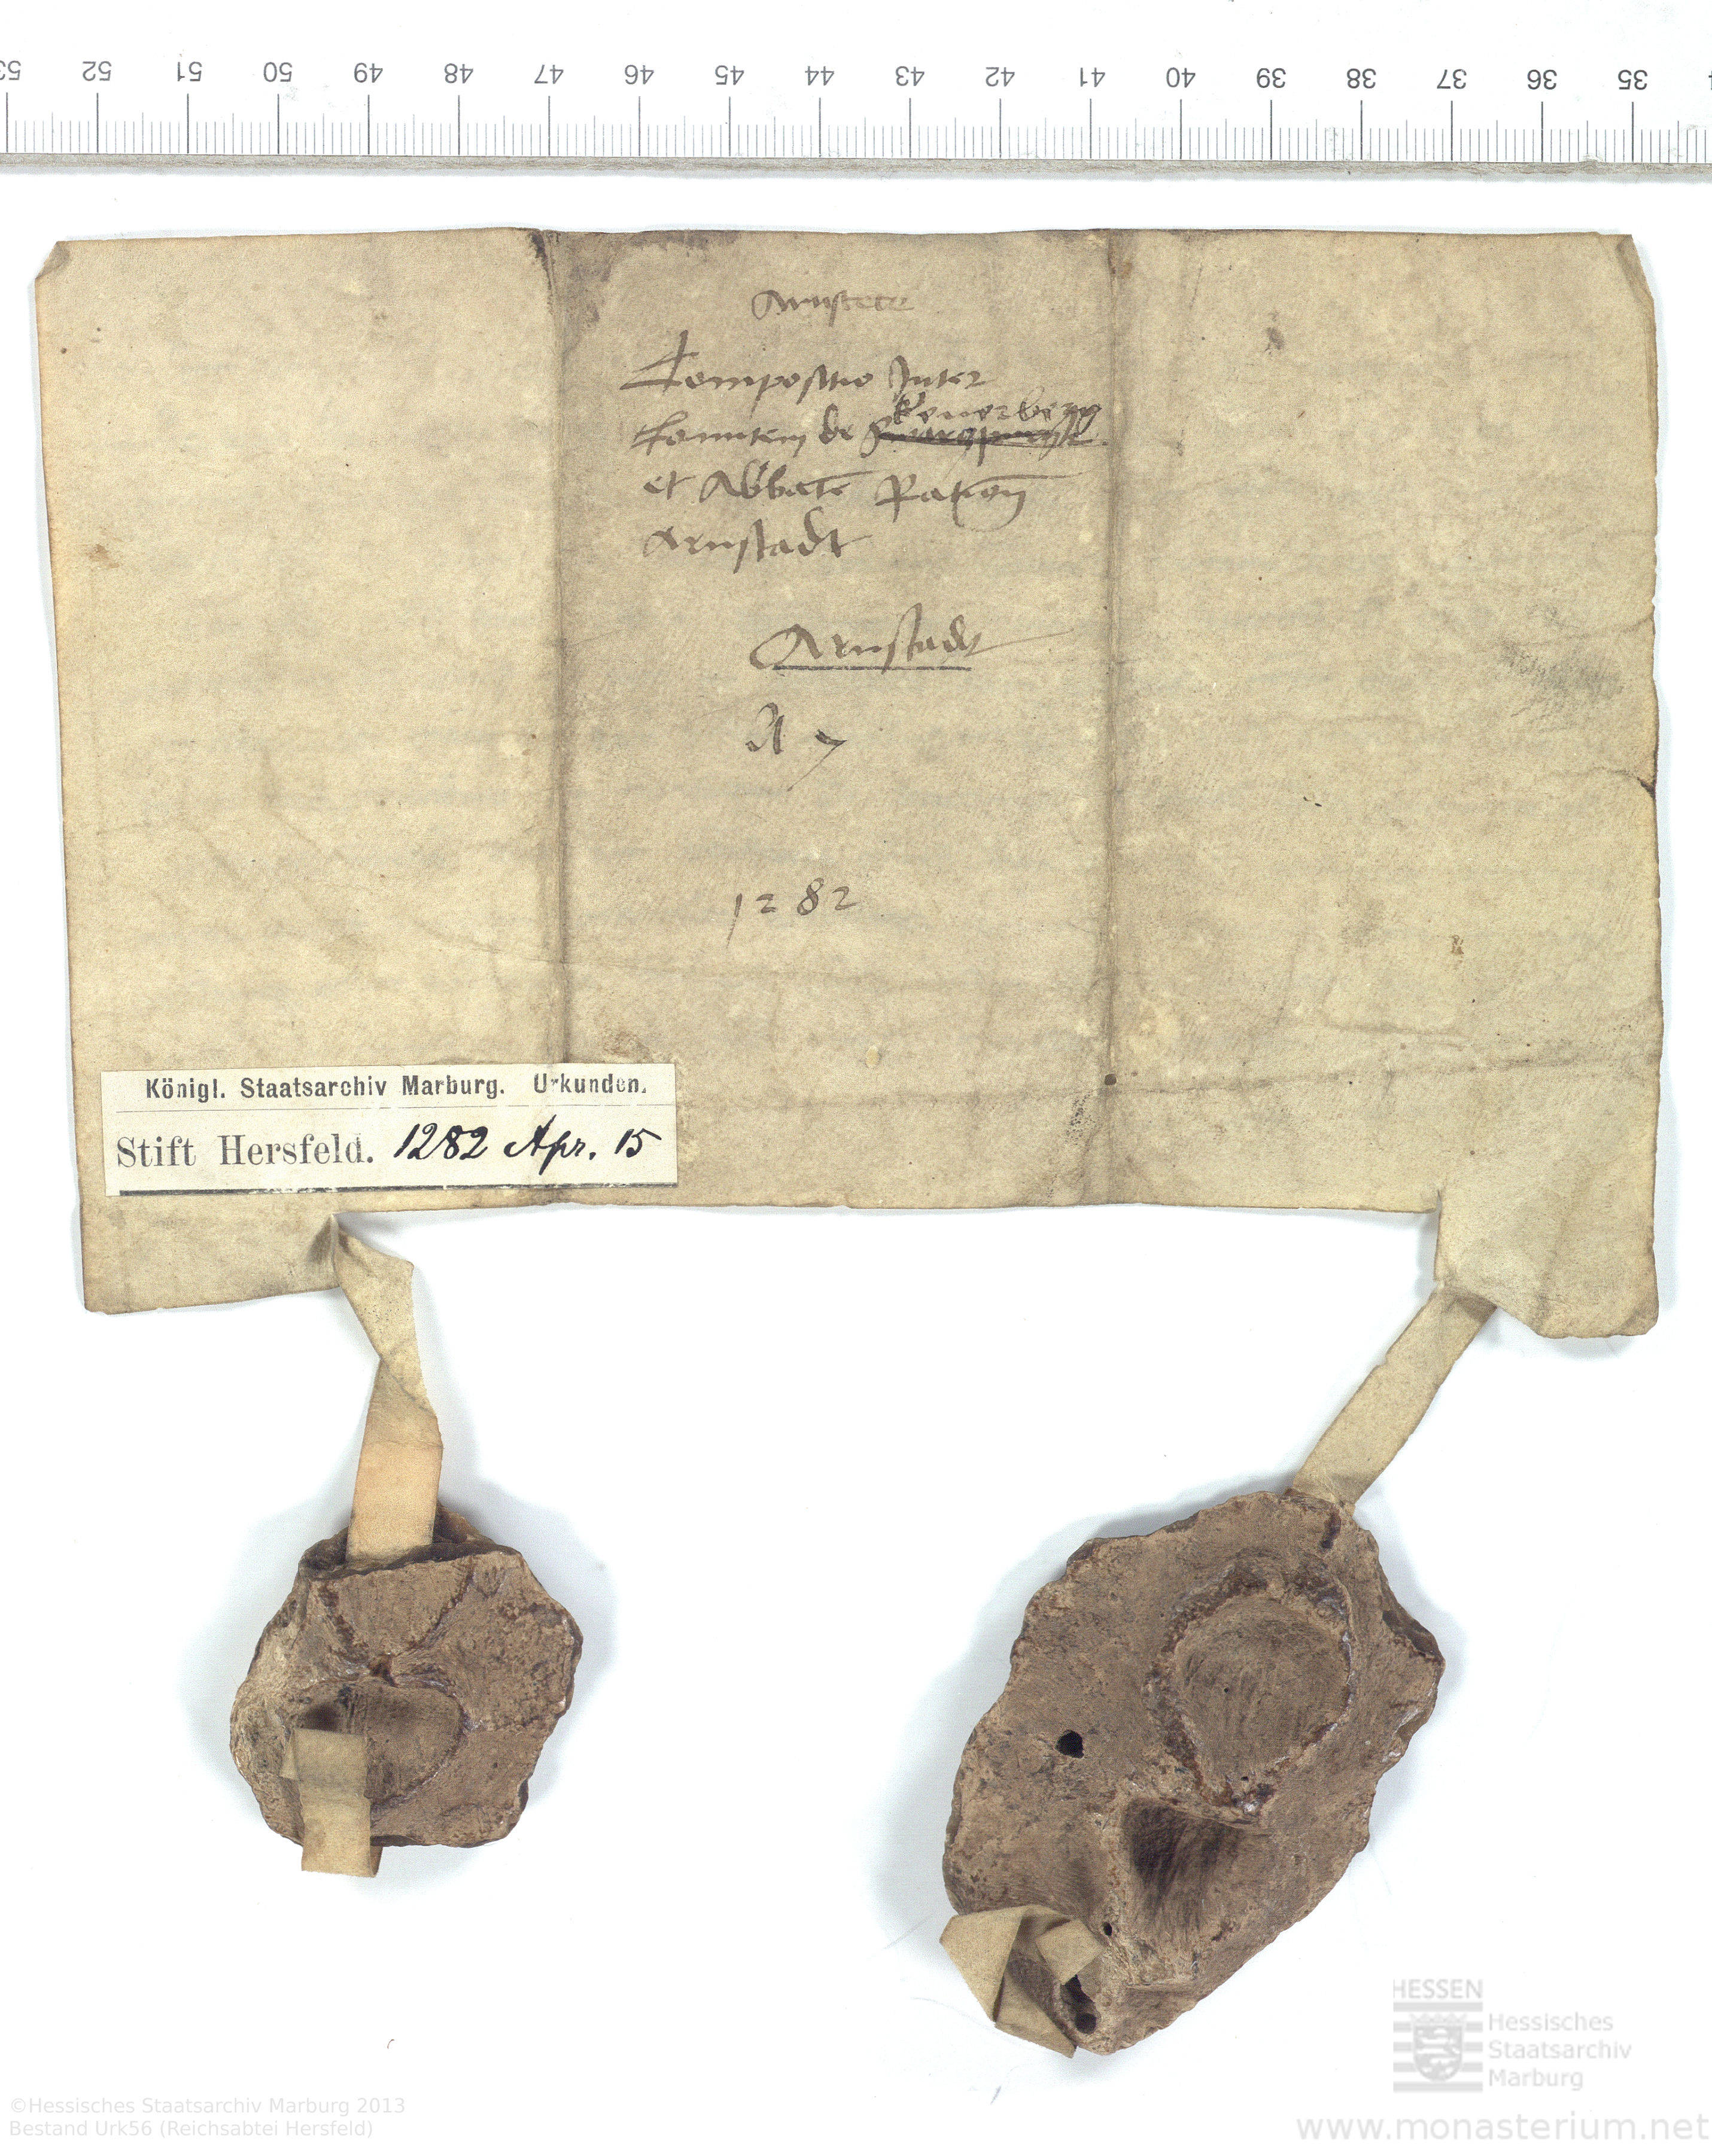 53 52 51 50 49 48 47 46 45 44 43 42 41 40 39 38 37 36 35
Arnstete
Compositio Inter
Keuerberg
Comitem de
et Abbatē Ratiōn
Arnstadt
Arnstadt
A 7
1282
Königl. Staatsarchiv Marburg. Urkunden.
Stift Hersfeld. 1282 Apr. 15
HESSEN
Hessisches
Staatsarchiv
Marburg
©Hessisches Staatsarchiv Marburg 2013
Bestand Urk56 (Reichsabtei Hersfeld)
www.monasterium.net